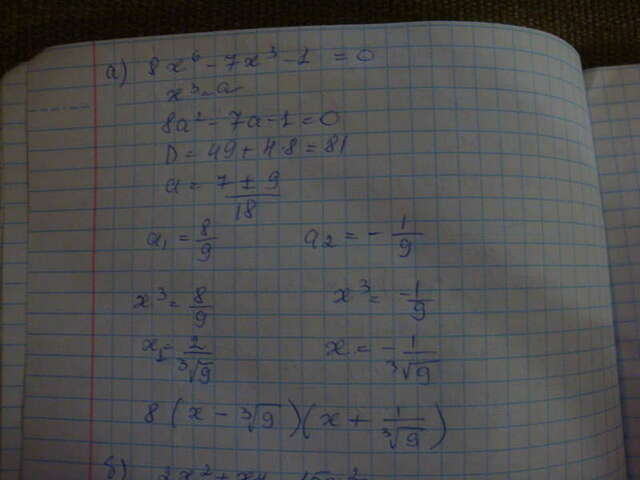 а) 8x⁶ - 7x³ - 1 = 0
x³ = a
8a² - 7a - 1 = 0
D = 49 + 4·8 = 81
a = (7 ± 9)/18
a₁ = 8/9 a₂ = - 1/9
x³ = 8/9 x³ = -1/9
x₁ = 2/∛9 x = - 1/∛9
8(x - ∛9)(x + 1/∛9)
б)